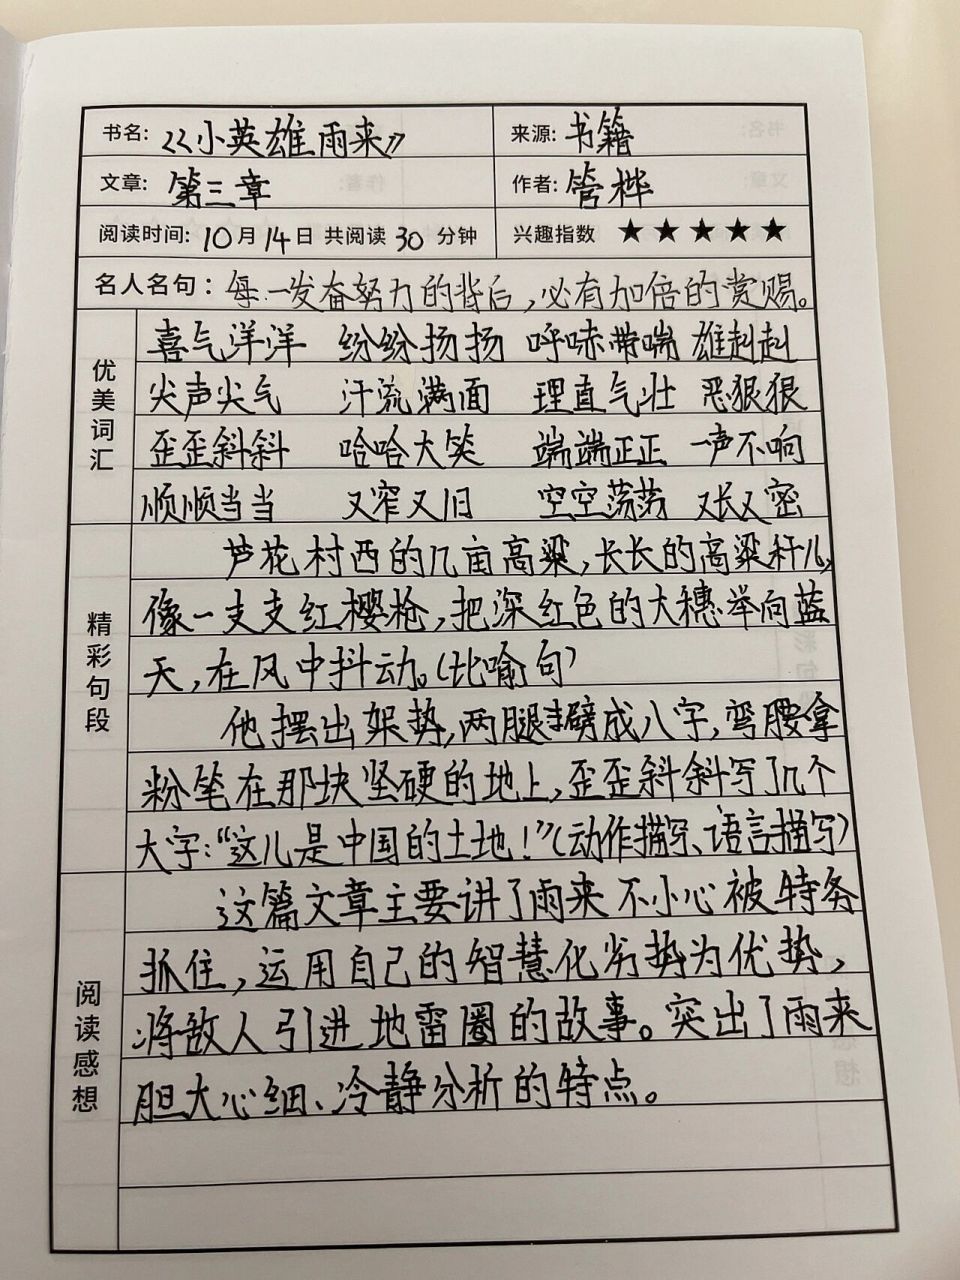 书名:《小英雄雨来》 来源:书籍
文章:第三章 作者:管桦
阅读时间:10月14日 共阅读30分钟 兴趣指数 ★★★★★
名人名句:每一发奋努力的背后,必有加倍的赏赐。
优美词汇
喜气洋洋 纷纷扬扬 呼哧带喘 雄赳赳
尖声尖气 汗流满面 理直气壮 恶狠狠
歪歪斜斜 哈哈大笑 端端正正 一声不响
顺顺当当 又窄又旧 空空荡荡 又长又密
精彩句段
芦花村西的几亩高粱,长长的高粱秆儿,
像一支支红樱枪,把深红色的大穗举向蓝
天,在风中抖动。(比喻句)
他摆出架势,两腿劈成八字,弯腰拿
粉笔在那块坚硬的地上,歪歪斜斜写了几个
大字:“这儿是中国的土地!”(动作描写、语言描写)
阅读感想
这篇文章主要讲了雨来不小心被特务
抓住,运用自己的智慧化劣势为优势,
将敌人引进地雷圈的故事。突出了雨来
胆大心细、冷静分析的特点。